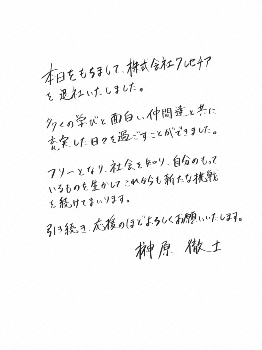 本日をもちまして、株式会社クレセチア
を退社いたしました。
多くの学びと面白い仲間達と共に
充実した日々を過ごすことができました。
フリーとなり、社会を知り、自分のもって
いるものを生かしてこれからも新たな挑戦
を続けてまいります。
引き続き、応援のほどよろしくお願いいたします。
榊原 徹士